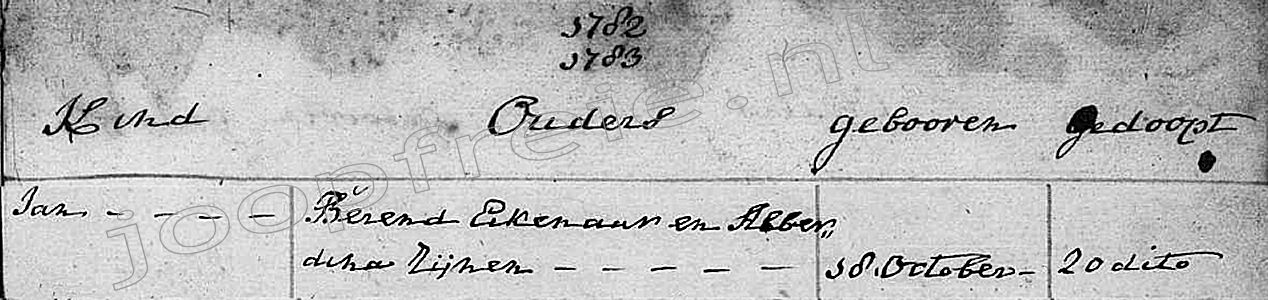 1782
1783
Kind Ouders gebooren gedoopt
Jan - - - - Berend Eikenaar en Alber„
dina Zijnen - - - - - 18. October - 20 dito
joopfreie.nl